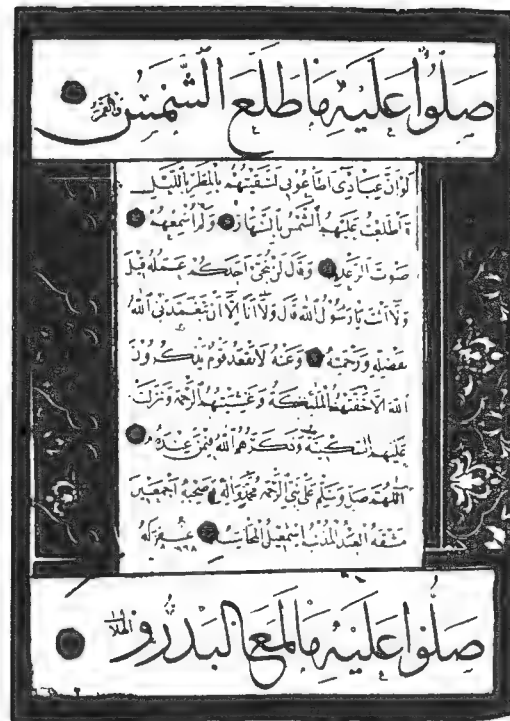 صَلُّوا عَلَيْهِ مَا طَلَعَ الشَّمْسُ وَالْقَمَرُ
لَوْ أَنَّ عِبَادِي أَطَاعُونِي لَسَقَيْتُهُمْ بِالْمَطَرِ بِاللَّيْلِ
وَأَطْلَعْتُ عَلَيْهِمُ الشَّمْسَ بِالنَّهَارِ وَلَمْ أُسْمِعْهُمْ
صَوْتَ الرَّعْدِ وَقَالَ لَنْ يُنْجِيَ أَحَدَكُمْ عَمَلُهُ قِيلَ
وَلَا أَنْتَ يَا رَسُولَ اللَّهِ قَالَ وَلَا أَنَا إِلَّا أَنْ يَتَغَمَّدَنِيَ اللَّهُ
بِفَضْلِهِ وَرَحْمَتِهِ وَعَنْهُ لَا يَقْعُدُ قَوْمٌ يَذْكُرُونَ
اللَّهَ إِلَّا حَفَّتْهُمُ الْمَلَائِكَةُ وَغَشِيَتْهُمُ الرَّحْمَةُ وَنَزَلَتْ
عَلَيْهِمُ السَّكِينَةُ وَذَكَرَهُمُ اللَّهُ فِيمَنْ عِنْدَهُ
اللَّهُمَّ صَلِّ وَسَلِّمْ عَلَى نَبِيِّ الرَّحْمَةِ مُحَمَّدٍ وَآلِهِ وَصَحْبِهِ أَجْمَعِينَ
مَشَقَهُ الْعَبْدُ الْمُذْنِبُ إِسْمَعِيلُ غُفِرَ لَهُ
صَلُّوا عَلَيْهِ مَا لَمَعَ الْبَدْرُ وَالْهِلَالُ